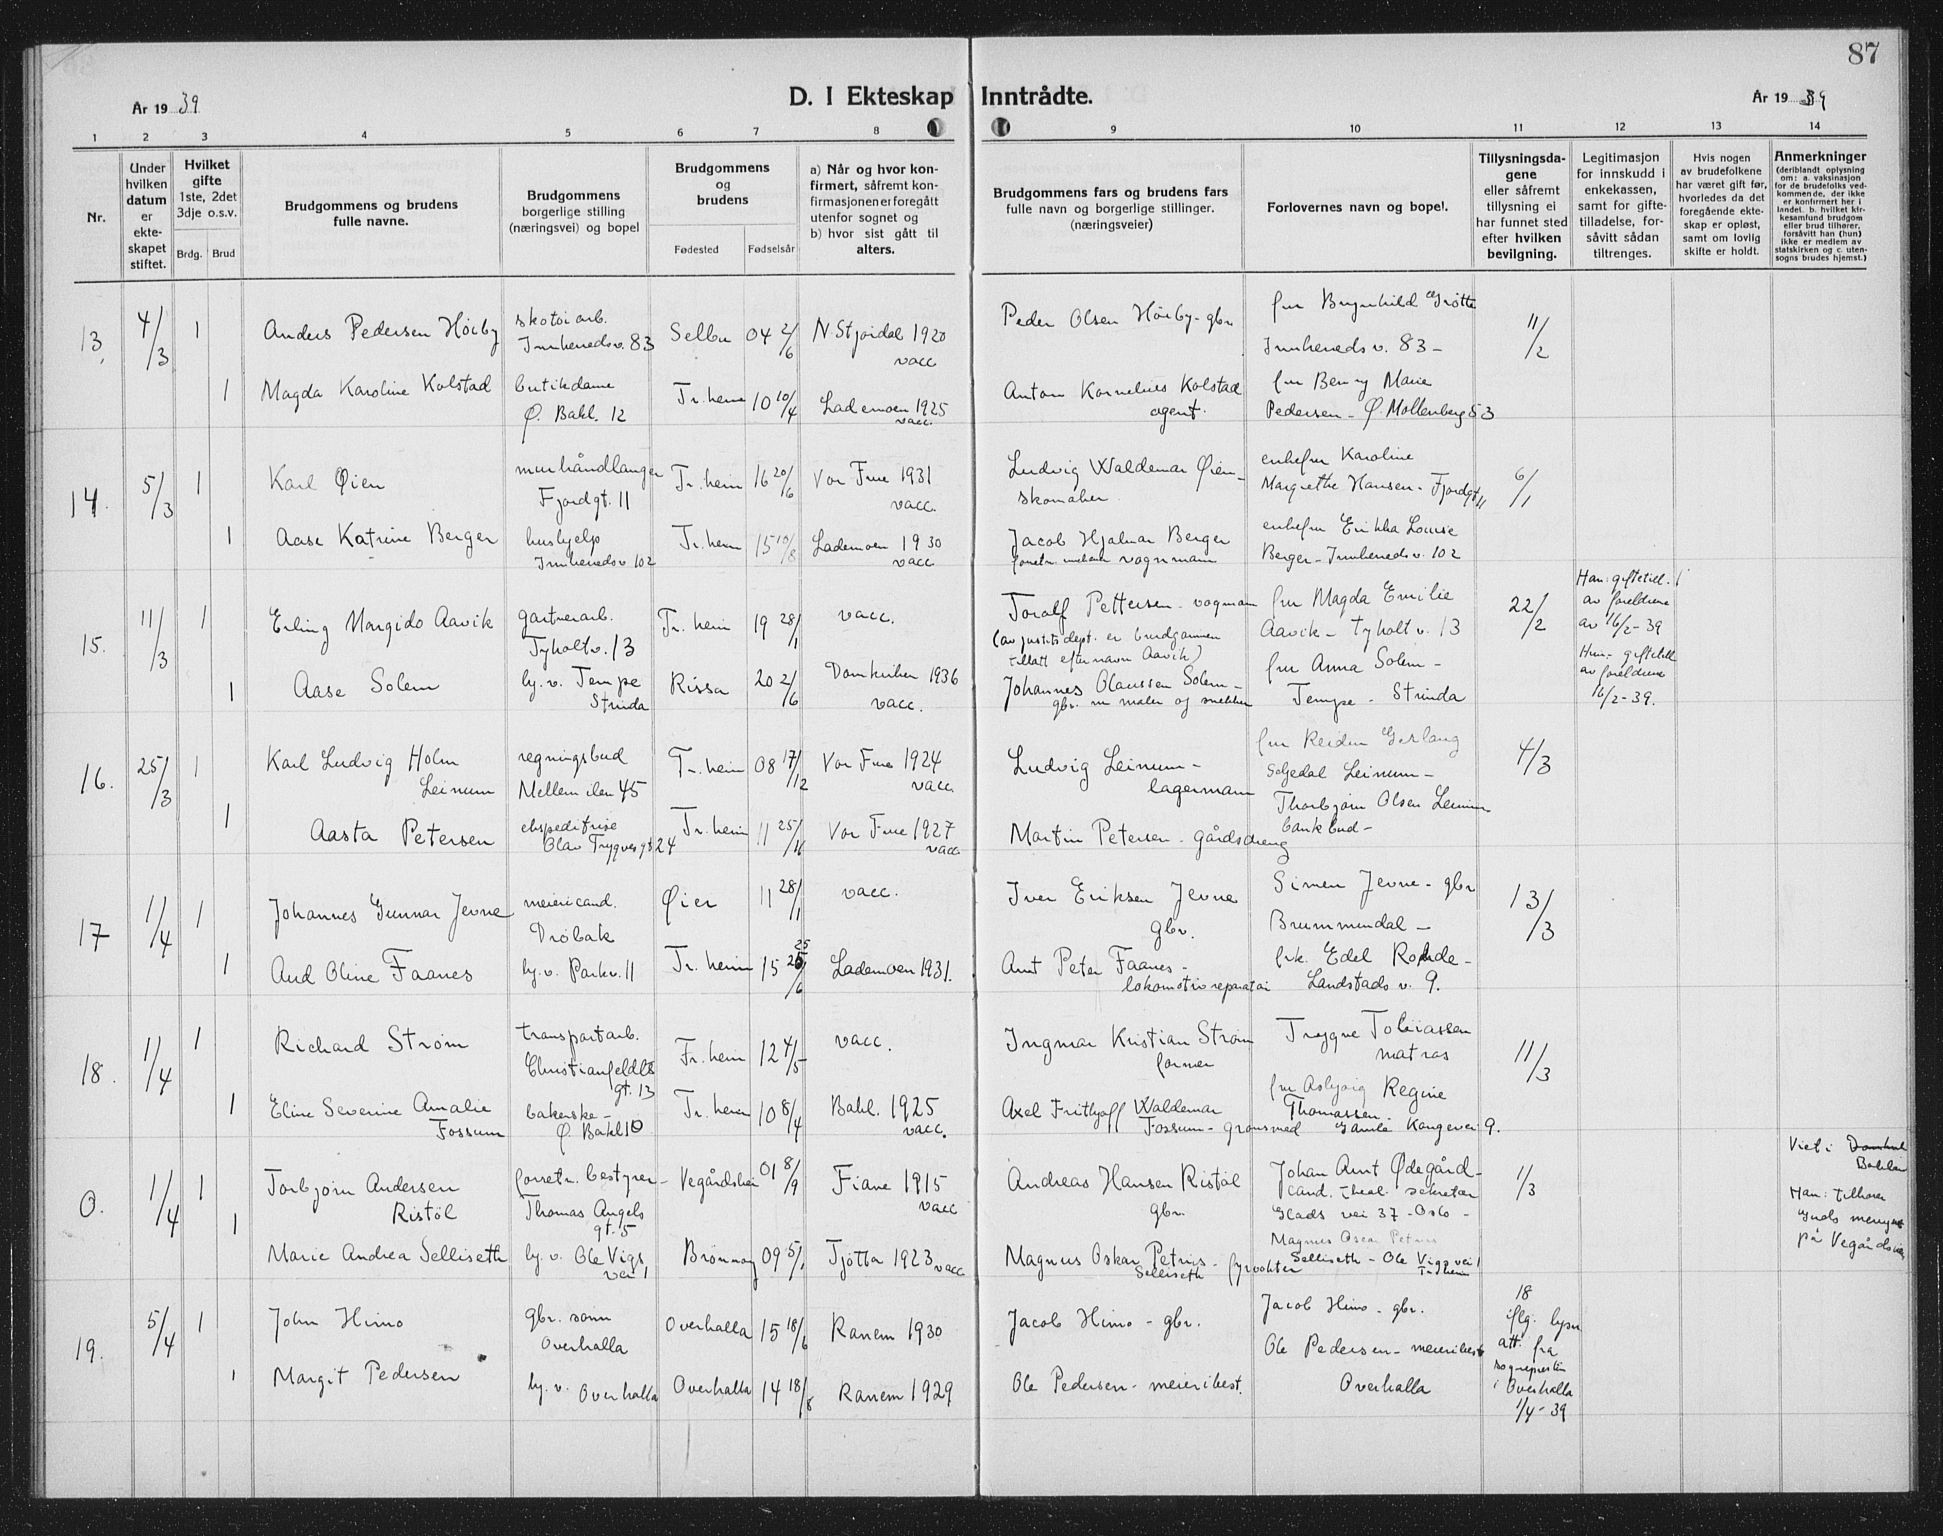 87
År 19 39
D. I Ekteskap Inntrådte.
År 19 39
1 2 3 4 5 6 7 8 9 10 11 12 13 14
Nr.
Under hvilken datum er ekteskapet stiftet.
Hvilket gifte 1ste, 2det 3dje o.s.v.
Brdg. Brud
Brudgommens og brudens fulle navne.
Brudgommens borgerlige stilling (næringsvei) og bopel
Brudgommens og brudens
Fødested Fødselsår
a) Når og hvor konfirmert, såfremt konfirmasjonen er foregått utenfor sognet og b) hvor sist gått til alters.
Brudgommens fars og brudens fars fulle navn og borgerlige stillinger. (næringsveier)
Forlovernes navn og bopel.
Tillysningsdagene eller såfremt tillysning ei har funnet sted efter hvilken bevilgning.
Legitimasjon for innskudd i enkekassen, samt for giftetilladelse, forsåvitt sådan tiltrenges.
Hvis nogen av brudefolkene har været gift før, hvorledes da det foregående ekteskap er opløst, samt om lovlig skifte er holdt.
Anmerkninger (deriblandt oplysning om: a. vaksinasjon for de brudefolks vedkommende, der ikke er konfirmert her i landet. b. hvilket kirkesamfund brudgom eller brud tilhører, forsåvitt han (hun) ikke er medlem av statskirken og c. utensogns brudes hjemst.)
13. 4/3 1 Anders Pedersen Høiby skotøiarb. Innheredsv. 83 Selbu 04 2/6 N Stjørdal 1920 vacc Peder Olsen Høiby - gbr. fru Brynhild Grøtte Innheredsv. 83 - 11/2
1 Magda Karoline Kolstad butikdame Ø. Bakl. 12 Tr.heim 10 10/4 Lademoen 1925 vacc. Anton Kornelius Kolstad agent. fru Benny Marie Pedersen - Ø. Møllenberg 53
14. 5/3 1 Karl Øien murhåndlanger Fjordgt. 11 Tr.heim 16 20/6 Vor Frue 1931 vacc. Ludvig Waldemar Øien - skomaker. enkefru Karoline Margrethe Hansen - Fjordgt 11 6/1
1 Aase Katrine Berger hushjelp Innheredsv 102 Tr.heim 15 10/8 Lademoen 1930 vacc Jacob Hjalmar Berger vognmann enkefru Erikka Louise Berger - Innheredsv. 102
15. 11/3 1 Erling Margido Aavik gartnerarb. Tyholtv. 13 Tr. heim 19 28/1 vacc. Toralf Pettersen - vognm (av justitsdept. er brudgommen tillatt efternavn Aavik) fru Magda Emilie Aavik - Tyholtv. 13 22/2 Han: giftetill. av foreldrene av 16/2-39
1 Aase Solem hj. v. Tempe Strinda Rissa 20 2/6 Domkirken 1936 vacc. Johannes Olaussen Solem - gbr. m maler og snekker fru Anna Solem - Tempe - Strinda Hun - giftetill av foreldrene 16/2-39.
16. 25/3 1 Karl Ludvig Holm Leinum regningsbud Mellemilen 45 Tr.heim 08 17/12 Vor Frue 1924 vacc. Ludvig Leinum - lagermann fru Reidun Gerlaug Leinum - 4/3
1 Aasta Petersen ekspeditrise Olav Trygves gt 24 Tr.heim 11 25/11 Vor Frue 1927 vacc. Martin Petersen - gårdsdreng Thorbjørn Olsen Leinum bankbud -
17 1/4 1 Johannes Gunnar Jevne meiericand. Drøbak Øier 11 28/1 vacc. Iver Eriksen Jevne gbr. Simen Jevne - gbr Brummundal - 13/3
1 Aud Oline Faanes hj. v. Parkv. 11 Tr.heim 15 25/6 Lademoen 1931. Arnt Peter Faanes - lokomotivreparatør frk. Edel Rohde - Landstads v. 9.
18. 1/4 1 Richard Strøm transportarb. Christianfeldts gt. 13 Tr.heim 12 4/5 vacc. Ingmar Kristian Strøm former Trygve Tobiassen matros 11/3
1 Eline Severine Amalie Fossum bakerske - Ø. Bakl 10 Tr.heim 10 8/4 Bakl. 1925 vacc. Axel Frithjoff Waldemar Fossum - fru Asbjørg Regine Thomassen. Gamle Kongevei 9.
0. 1/4 1 Torbjørn Andersen Ristöl forretn. bestyrer - Thomas Angels gt. 5 Vegårdshei 01 8/9 Fiane 1915 vacc Andreas Hansen Ristöl gbr. Johan Arnt Ødegård - cand. theol. sekretær Glads vei 37 - Oslo - 1/3 Viet i Domkirk Bakklan Han: tilhører Guds menighet på Vegårdshei
1 Marie Andrea Selliseth hj. v. Ole Vigs vei 1 Brønnøy 09 5/1 Tjøtta 1923 vacc Magnus Oskar Petrus Selliseth - fyrvokter Magnus Oscar Petrus Selliseth - Ole Vigs vei 1 Tr.heim
19. 5/4 1 John Himo gbr. sønn Overhalla Overhalla 15 18/6 Ranem 1930 Jacob Himo - gbr. Jacob Himo - gbr. 18 iflg. lysn att. fra sogneprestens i Overhalla 1/4-39
1 Margit Pedersen hj. v. Overhalla Overhalla 14 18/8 Ranem 1929 Ole Pedersen - meieribest. Ole Pedersen - meieribest Overhalla